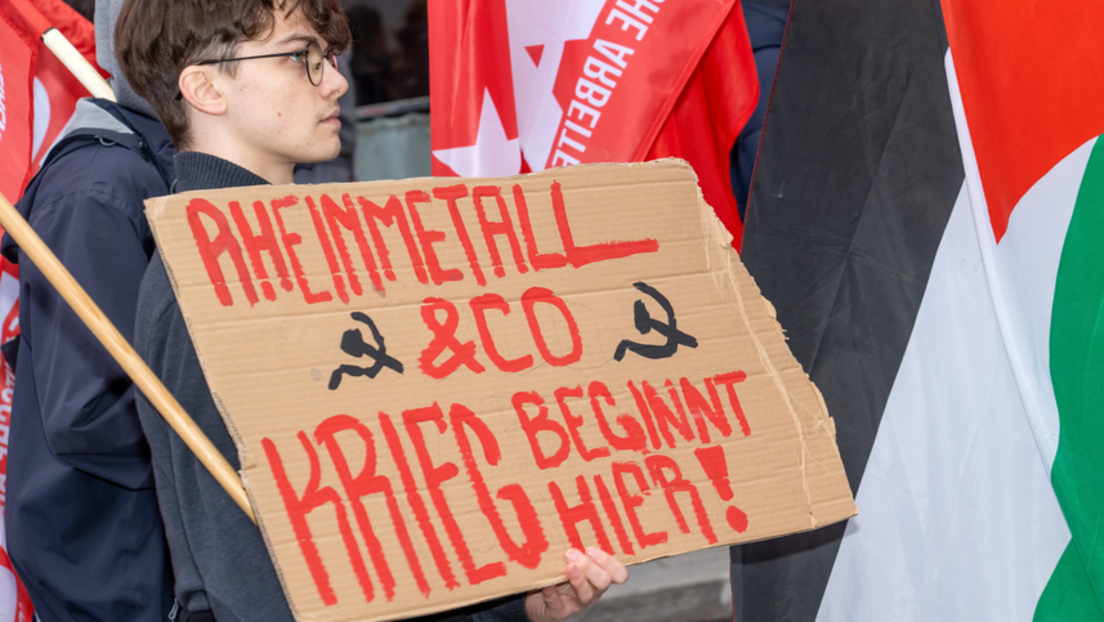 HE ARBEITE
RHEINMETALL
&CO
KRIEG BEGINNT
HIER!